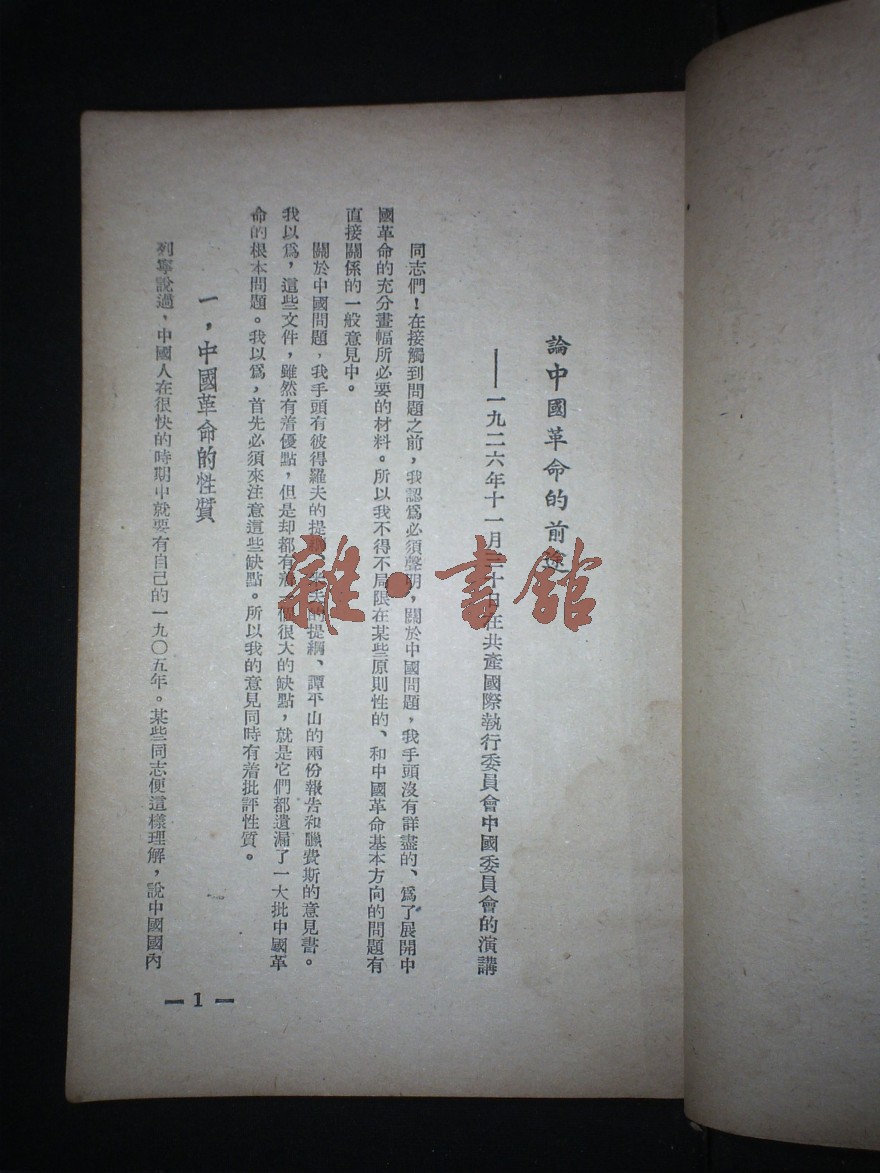 論中國革命的前途
——一九二六年十一月三十日在共產國際執行委員會中國委員會的演講
同志們！在接觸到問題之前，我認爲必須聲明，關於中國問題，我手頭沒有詳盡的、爲了展開中
國革命的充分畫幅所必要的材料。所以我不得不局限在某些原則性的、和中國革命基本方向的問題有
直接關係的一般意見中。
關於中國問題，我手頭有彼得羅夫的提綱、米夫的提綱、譚平山的兩份報告和臘費斯的意見書。
我以爲，這些文件，雖然有着優點，但是却都有着一個很大的缺點，就是它們都遺漏了一大批中國革
命的根本問題。我以爲，首先必須來注意這些缺點。所以我的意見同時有着批評性質。
一，中國革命的性質
列寧說過，中國人在很快的時期中就要有自己的一九〇五年。某些同志便這樣理解，說中國國內
1
雜·書館